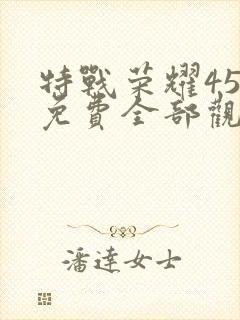 特戰荣耀45
免費全部觀
潘達女士